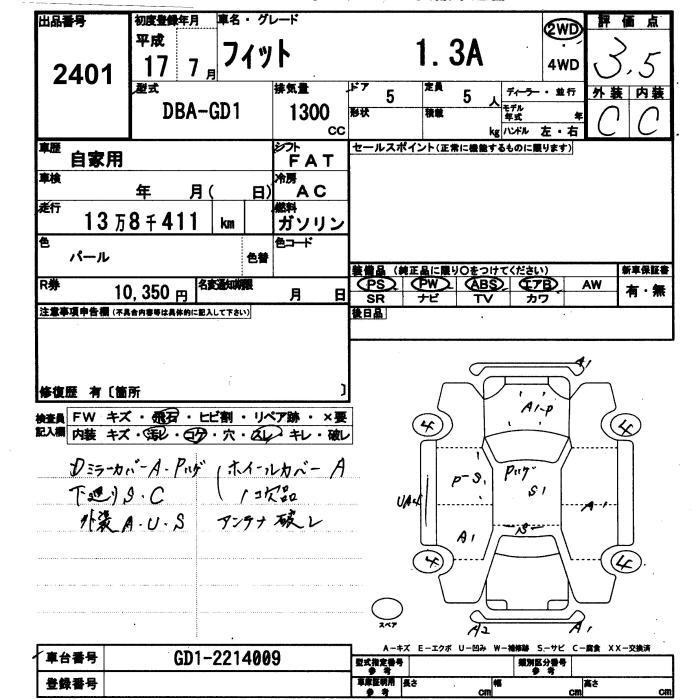 出品番号 初度登録年月 車名・グレード 2WD 評価点
2401 平成 17 7月 フィット 1.3A ・ 4WD 3.5
型式 排気量 ドア 定員 ディーラー・並行 外装 内装
DBA-GD1 1300 CC 5 5 人 モデル年式 年 C C
形状 積載 kg ハンドル 左・右
車歴 シフト セールスポイント(正常に機能するものに限ります)
自家用 FAT
車検 冷房
年 月( 日) AC
走行 燃料
13万8千411 km ガソリン
色 色コード
パール 色替
装備品 (純正品に限り○をつけてください) 新車保証書
R券 名変通知期限 PS PW ABS エアB AW 有・無
10,350円 月 日 SR ナビ TV カワ
注意事項申告欄(不具合内容等は具体的に記入して下さい) 後日品
修復歴 有〔箇所 〕
検査員記入欄 FW キズ・飛石・ヒビ割・リペア跡・×要
内装 キズ・汚レ・コゲ・穴・スレ・キレ・破レ
DミラーカバーA・Pハゲ ホイールカバー A
下廻りS.C 1コ欠品
外装A.U.S アンテナ破レ
A1
A1-P
4 4
P-S1 Pハゲ S1
UA4 A1
A1 S
4 4
スペア A2 A1
A−キズ E−エクボ U−凹み W−補修跡 S−サビ C−腐食 XX−交換済
車台番号 GD1-2214009 型式指定番号 参考 類別区分番号 参考
登録番号 車庫証明用 参考 長さ cm 幅 cm 高さ cm